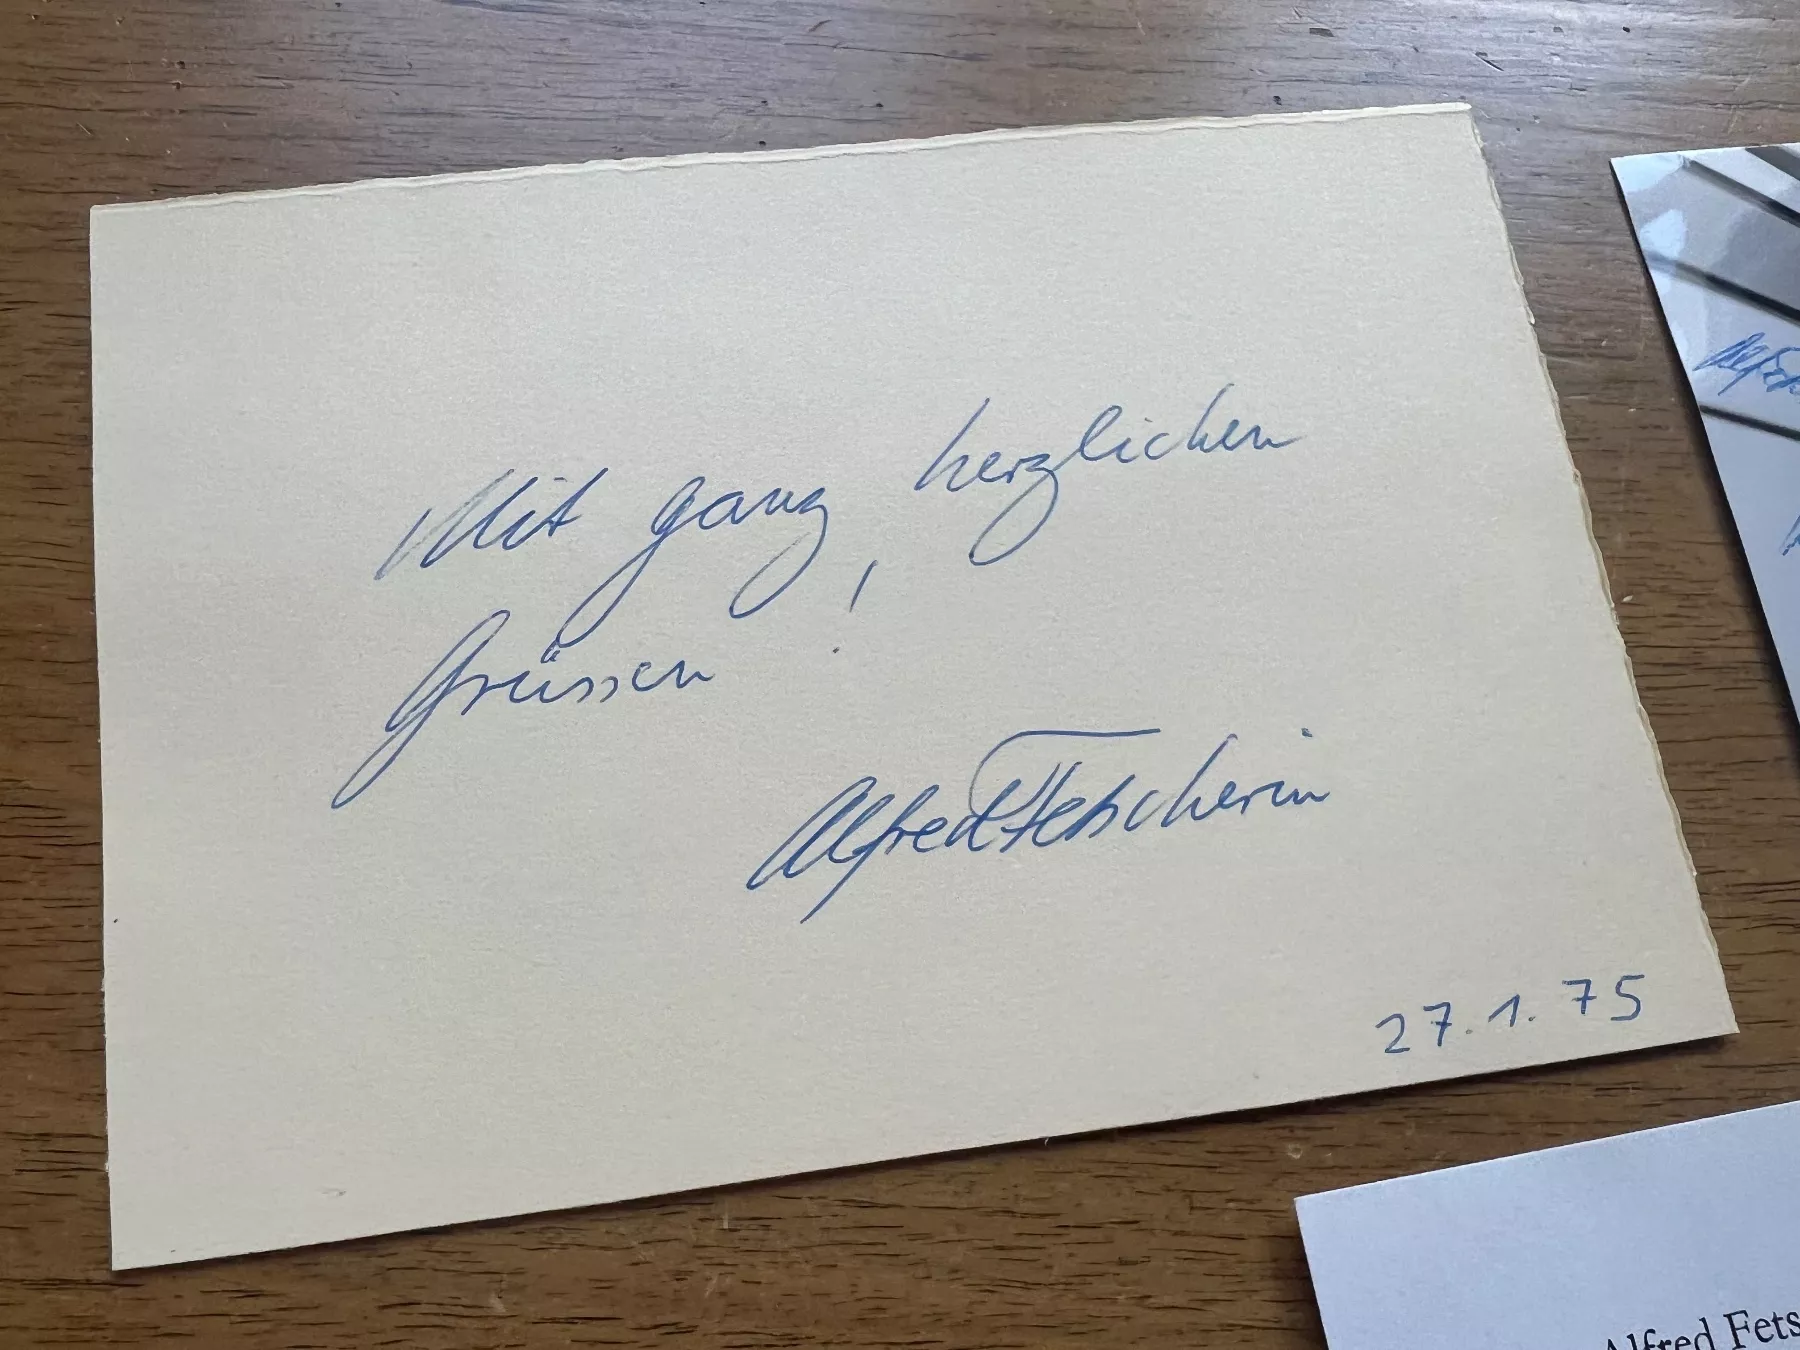 Mit ganz herzlichen
Grüssen !
Alfred Fetscherin
27.1.75
Alfred Fets